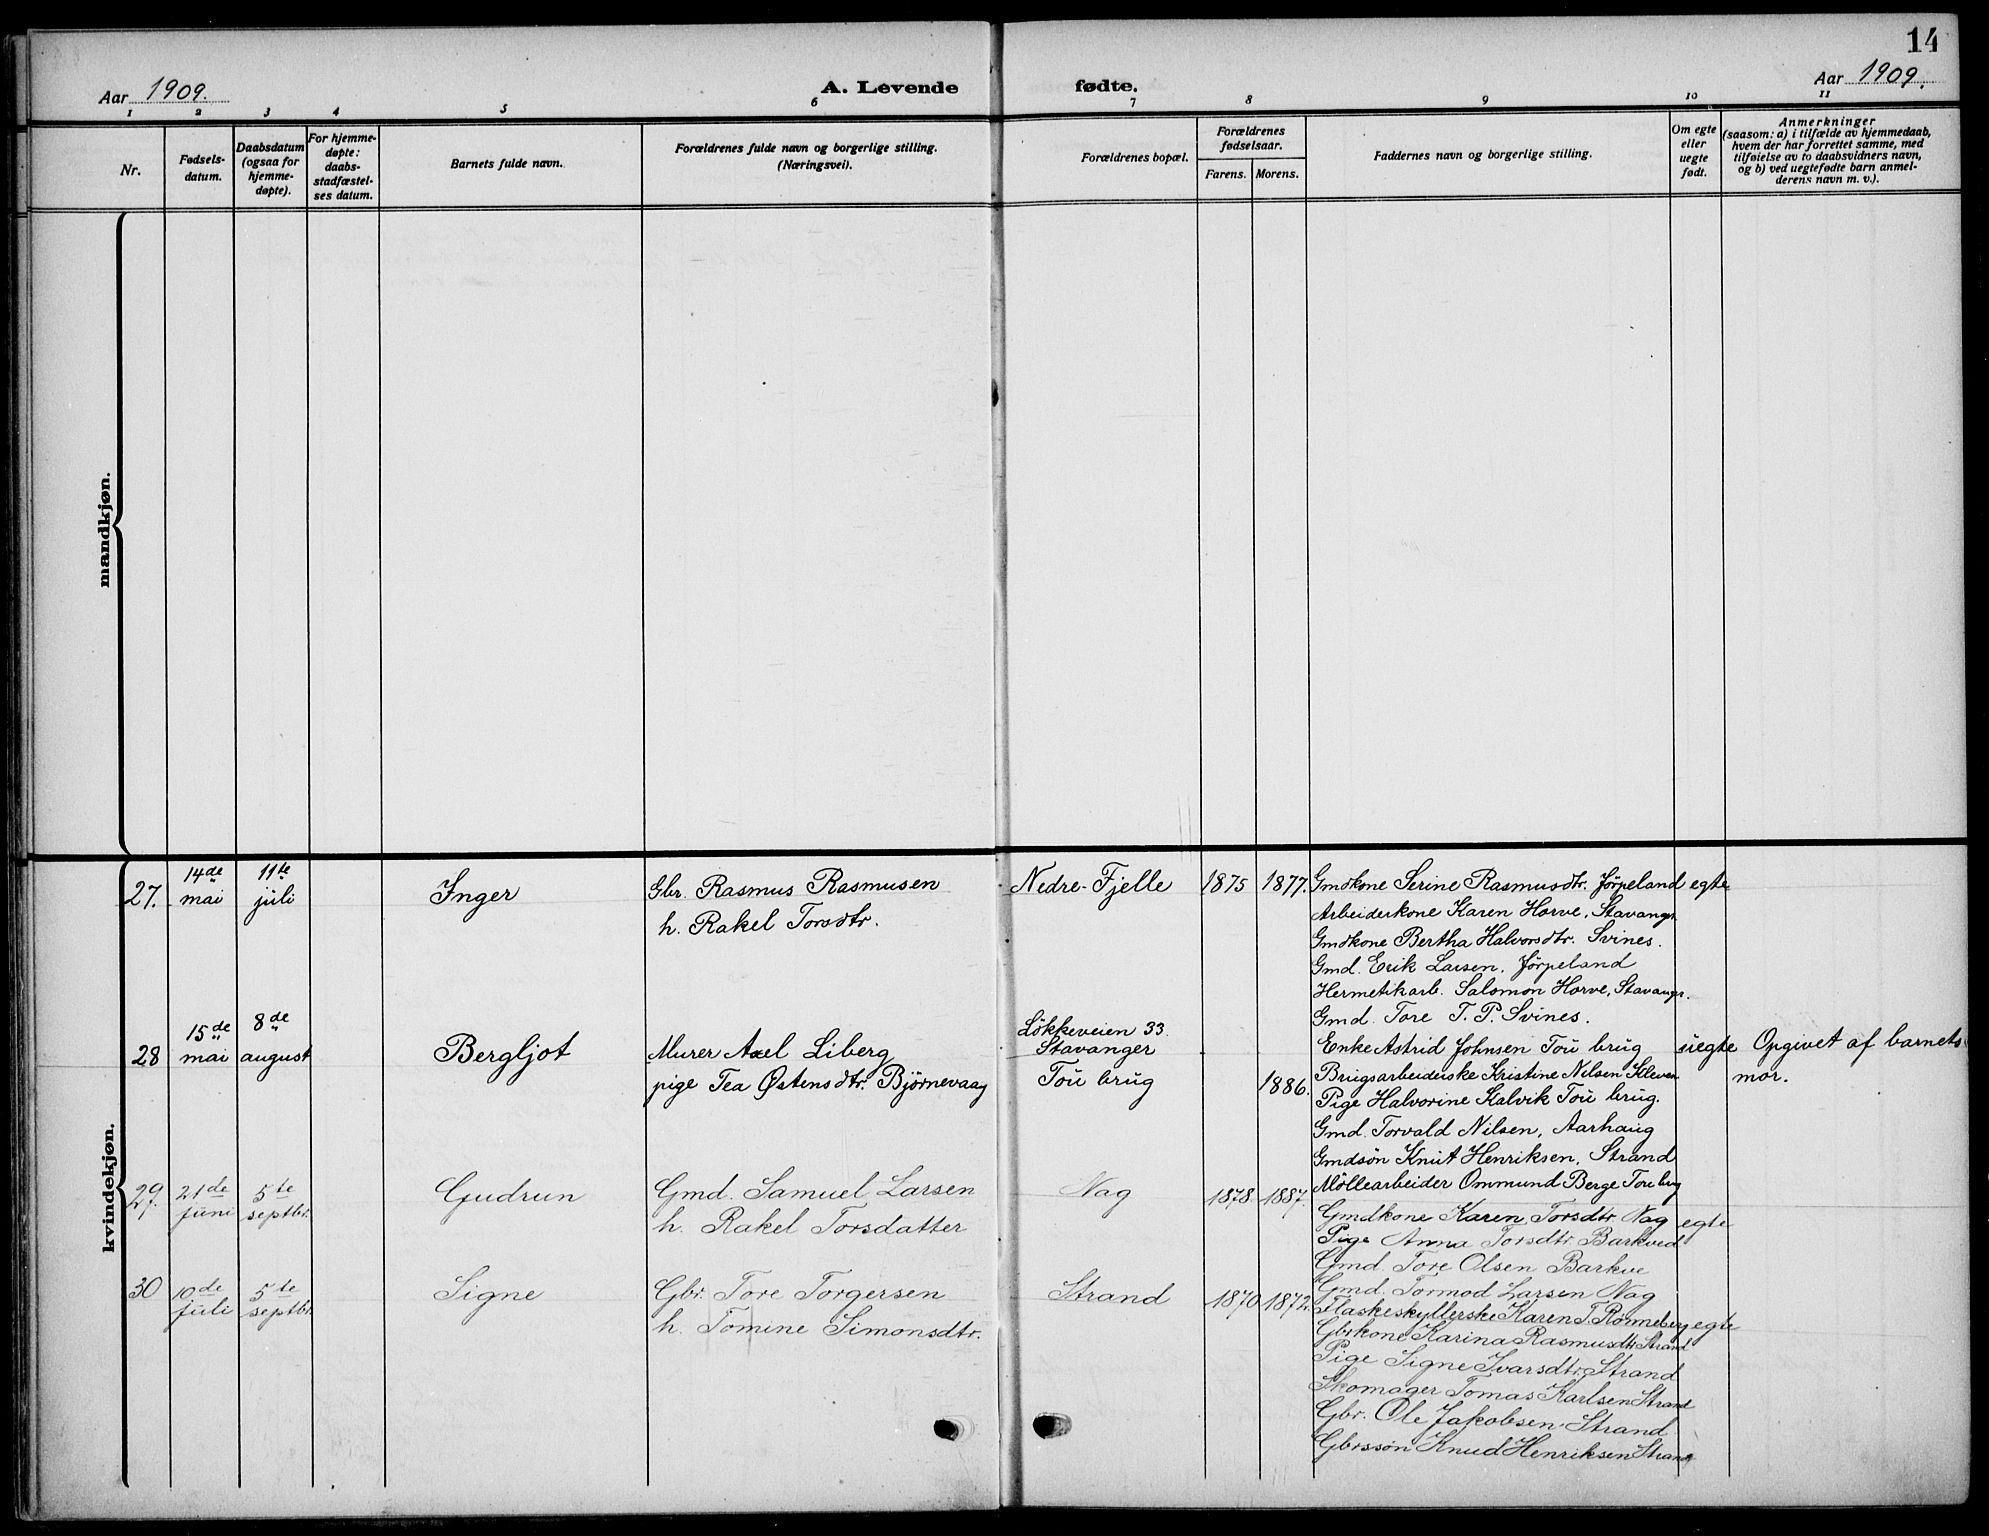 14
Aar 1909.
A. Levende fødte.
Aar 1909.
1 2 3 4 5 6 7 8 9 10 11
Nr.
Fødsels-
datum.
Daabsdatum
(ogsaa for
hjemme-
døpte).
For hjemme-
døpte:
daabs-
stadfæstel-
ses datum.
Barnets fulde navn.
Forældrenes fulde navn og borgerlige stilling.
(Næringsvei).
Forældrenes bopæl.
Forældrenes
fødselsaar.
Farens. Morens.
Faddernes navn og borgerlige stilling.
Om egte
eller
uegte
født.
Anmerkninger
(saasom: a) i tilfælde av hjemmedaab,
hvem der har forrettet samme, med
tilføielse av to daabsvidners navn,
og b) ved uegtefødte barn anmel-
derens navn m. v.).
mandkjøn.
kvindekjøn.
27.
14de
mai
11te
juli
Inger
Gbr. Rasmus Rasmusen
h. Rakel Torsdtr.
Nedre-Fjelle
1875
1877.
Gmdkone Serine Rasmusdtr. Jörpeland
Arbeiderkone Karen Horve, Stavangr.
Gmdkone Bertha Halvorsdtr. Svines.
Gmd. Erik Larsen, Jörpeland
Hermetikarb. Salomon Horve, Stavangr.
Gmd. Tore T. P. Svines.
egte
28
15de
mai
8de
august
Bergljot
Murer Axel Liberg
pige Tea Østensdtr. Björnevaag
Lökkeveien 33.
Stavanger
Tou brug
1886.
Enke Astrid Johnsen Tou brug
Brugsarbeiderske Kristine Nilsen Kleven
Pige Halvorine Kalvik Tou brug.
Gmd. Torvald Nilsen, Aarhaug
Gmdsön Knut Henriksen, Strand
Möllearbeider Ommund Berge Tou brug
uegte
Opgivet af barnets
mor.
29.
21de
juni
5te
septbr.
Gudrun
Gmd. Samuel Larsen
h. Rakel Torsdatter
Nag
1878.
1887.
Gmdkone Karen Torsdtr. Nag
Pige Anna Torsdtr. Barkved
Gmd. Tore Olsen Barkve
Gmd. Tormod Larsen Nag
egte
30
10de
juli
5te
septbr.
Signe
Gbr. Tore Torgersen
h. Tomine Simonsdtr.
Strand
1870
1872.
Flaskeskyllerske Karen T. Rönneberg
Gbrkone Karina Rasmusdtr. Strand
Pige Signe Ivarsdtr. Strand
Skomager Tomas Karlsen Strand
Gbr. Ole Jakobsen Strand
Gbrssön Knud Henriksen Strand
egte